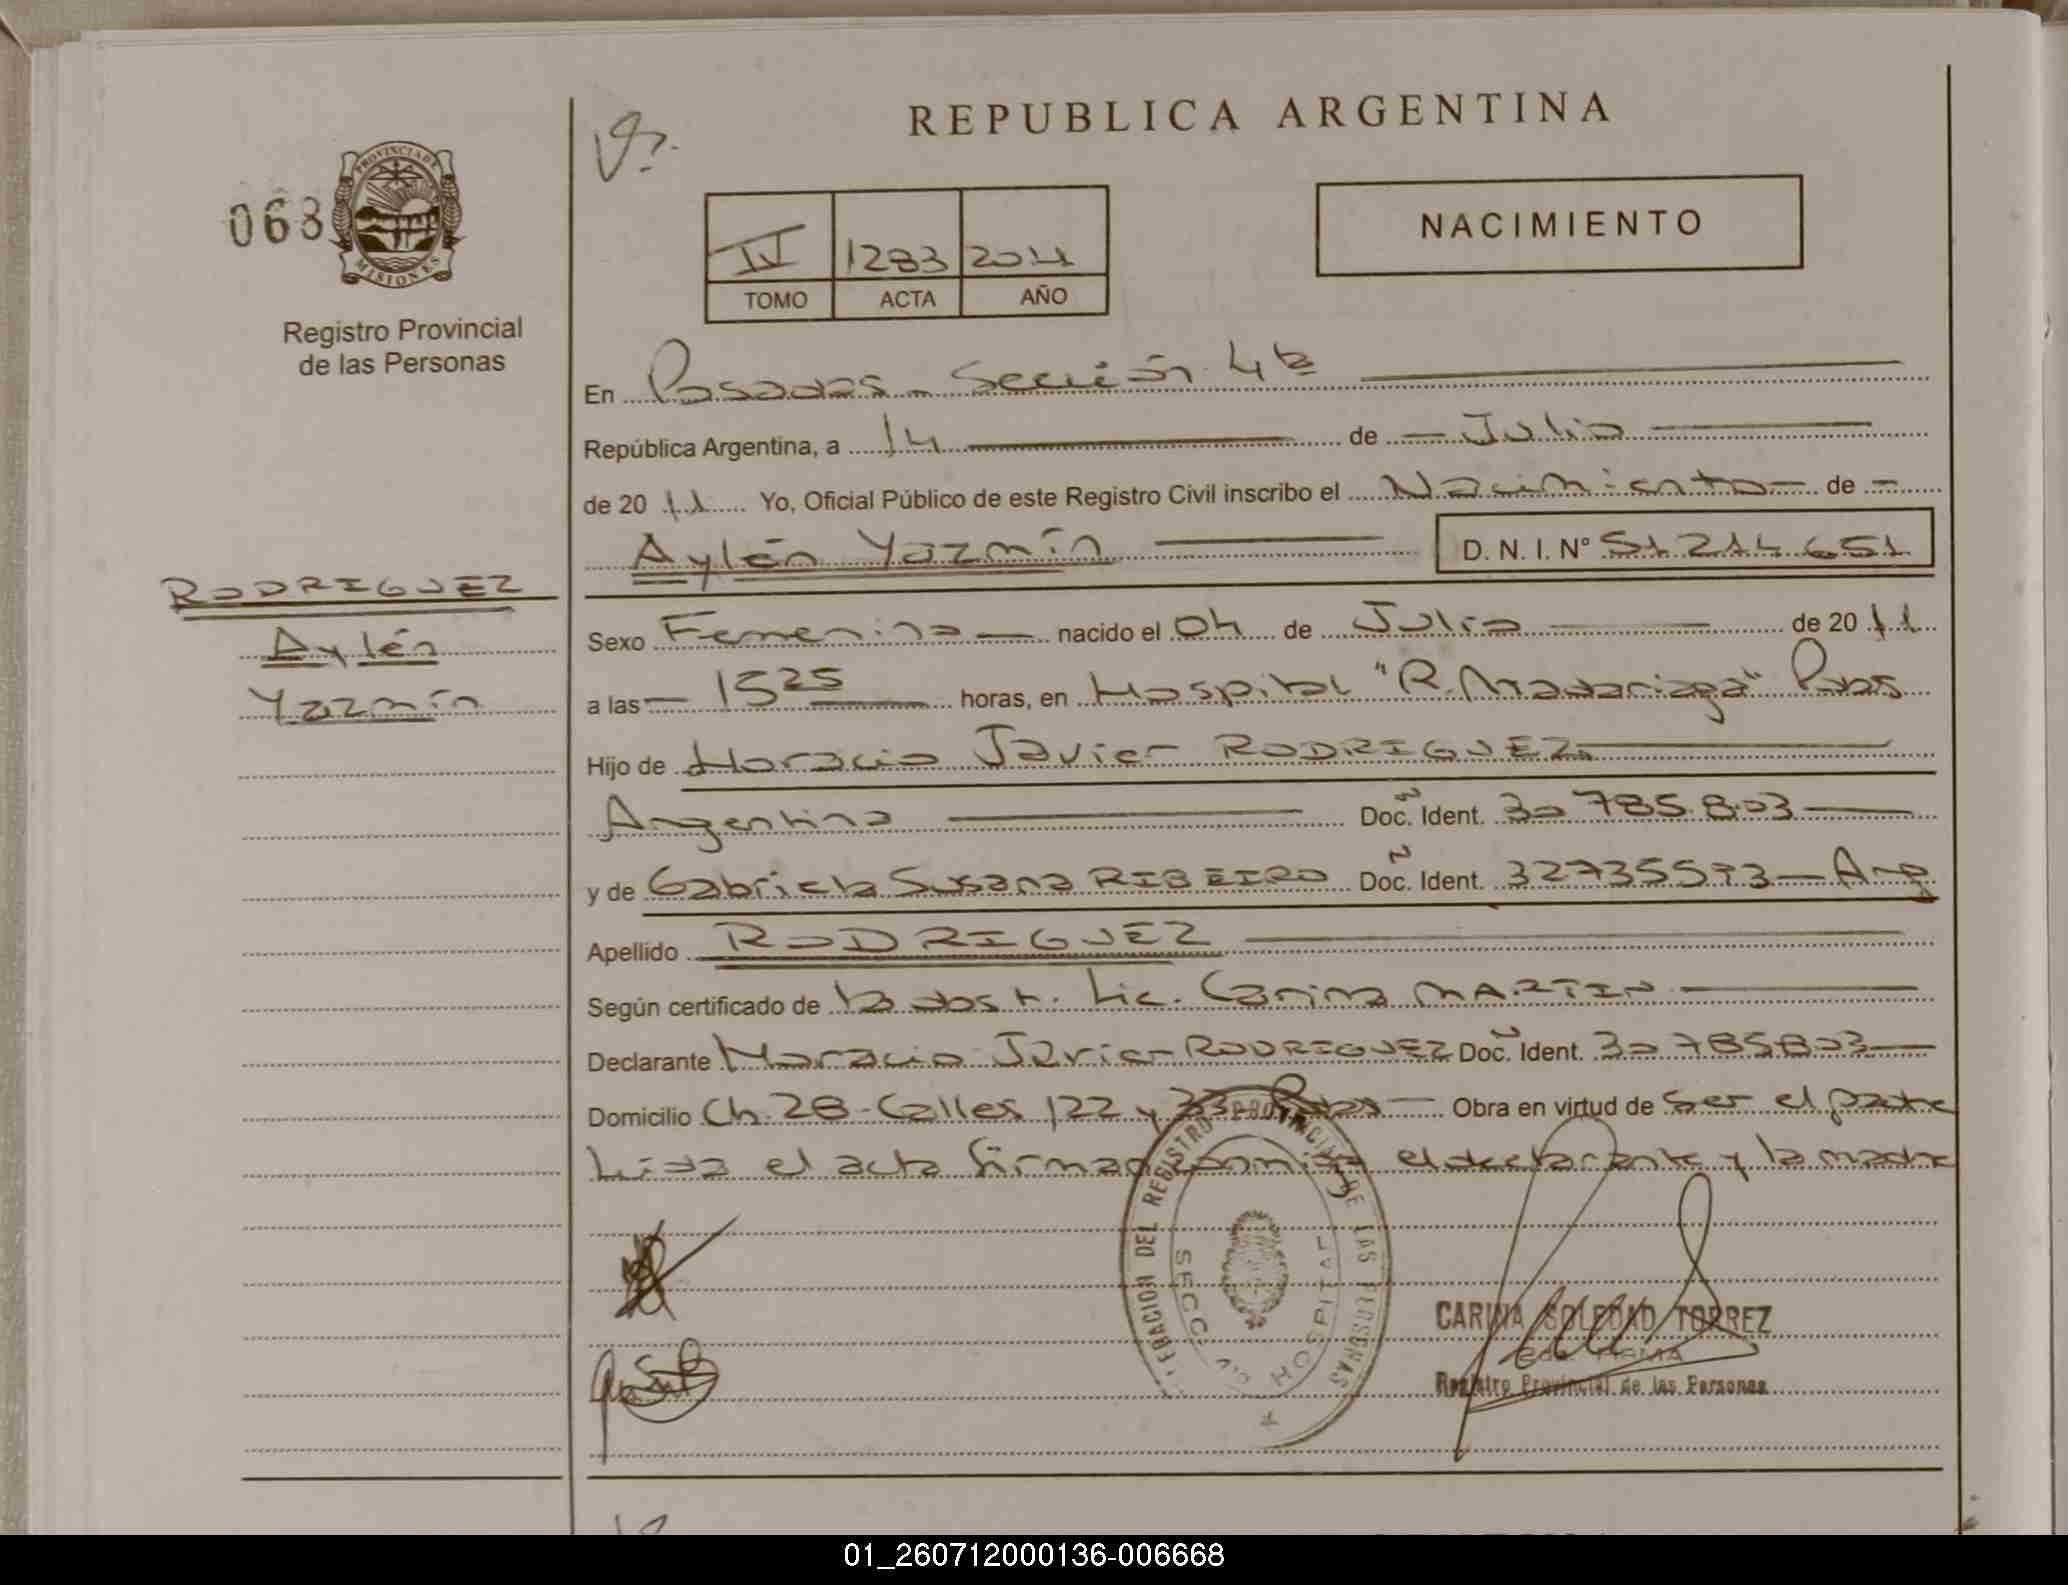 REPUBLICA ARGENTINA
068
PROVINCIA DE
MISIONES
Registro Provincial
de las Personas
NACIMIENTO
IV 1283 2011
TOMO ACTA AÑO
En Posadas - Sección 4ta
República Argentina, a 14 de Julio
de 20 11 Yo, Oficial Público de este Registro Civil inscribo el Nacimiento de
Aylén Yazmín D. N. I. N° 51.214.651
RODRIGUEZ
Aylén
Yazmín
Sexo Femenino nacido el 04 de Julio de 20 11
a las 15 25 horas, en Hospital "R. Madariaga" Pdas
Hijo de Horacio Javier RODRIGUEZ
Argentino Doc. Ident. 30 785.803
y de Gabriela Susana RIBEIRO Doc. Ident. 32735593 - Arg
Apellido RODRIGUEZ
Según certificado de la obst. Lic. Carina MARTIN
Declarante Horacio Javier RODRIGUEZ Doc. Ident. 30 785.803
Domicilio Ch. 28 - Calles 122 y 33 - Pdas Obra en virtud de Ser el padre
Leída el acta firman conmigo el declarante y la madre
DEL REGISTRO PROVINCIAL DE LAS PERSONAS
SECC. HOSPITAL
CARINA SOLEDAD TORREZ
FIRMA
Registro Provincial de las Personas
01_260712000136-006668